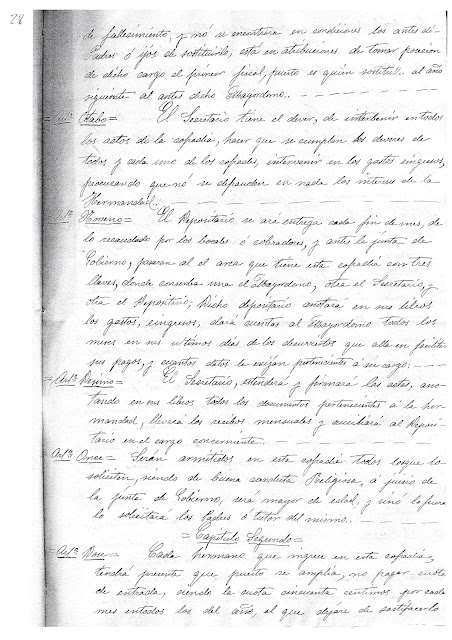 28
de fallecimiento, y nó se encontrara en condiciones los antes di-
Padres ó ijos de sostituirlo, está en atribuciones de tomar posesion
de dicho cargo el primer fiscal, puesto es quien sostitulle al año
siguiente al antes dicho Mayordomo..
=Artº Otabo= El Secretario tiene el dever, de interbenir en todos
los actos de la cofradia, hacer que se cumplan los deveres de
todos y cada uno de los cofrades, intervenir en los gastos e ingresos,
procurando que nó se defrauden en nada los interes de la
Hermandad.
=Artº Noveno= El Depositario se ará entrega cada fin de mes, de
lo recaudado por los Vocales ó cobradores, y antes la junta de
Gobierno, pasaran al el arca que tiene esta cofradia con tres
llaves, donde conserba una el Mayordomo, otra el Secretario, y
otra el Depositario; Dicho depositario anotará en sus libros
los gastos, e ingresos, dará cuentas al Mayordomo todos los
meses en sus ultimos dias de los descuviertos que alla en
sus pagos, y cuantos datos le exijan pertenecientes á su cargo:
=Artº Decimo= El Secretario, estenderá y firmará las actas, ano-
tando en sus libros todos los documentos pertenecientes á la her-
mandad, llevará los recibos mensuales y auxiliará al Deposi-
tario en el cargo concerniente.
=Artº Once= Serán armitidos en esta cofradia todos los que lo
soliciten, siendo de buena conducta Religiosa, á juicio de
la junta de Gobierno, será mayor de edad, y sinó lo fuera
lo solicitará los Padres ó tutor del mismo..
=Capitulo Segundo=
=Artº Doce= Cada hermano que ingrese en esta cofradia,
tendrá presente que puesto se amplia, no pagar cuota
de entrada, siendo la cuota cincuenta centimos, por cada
mes entodos los del año, el que dejare de sastifacerlo